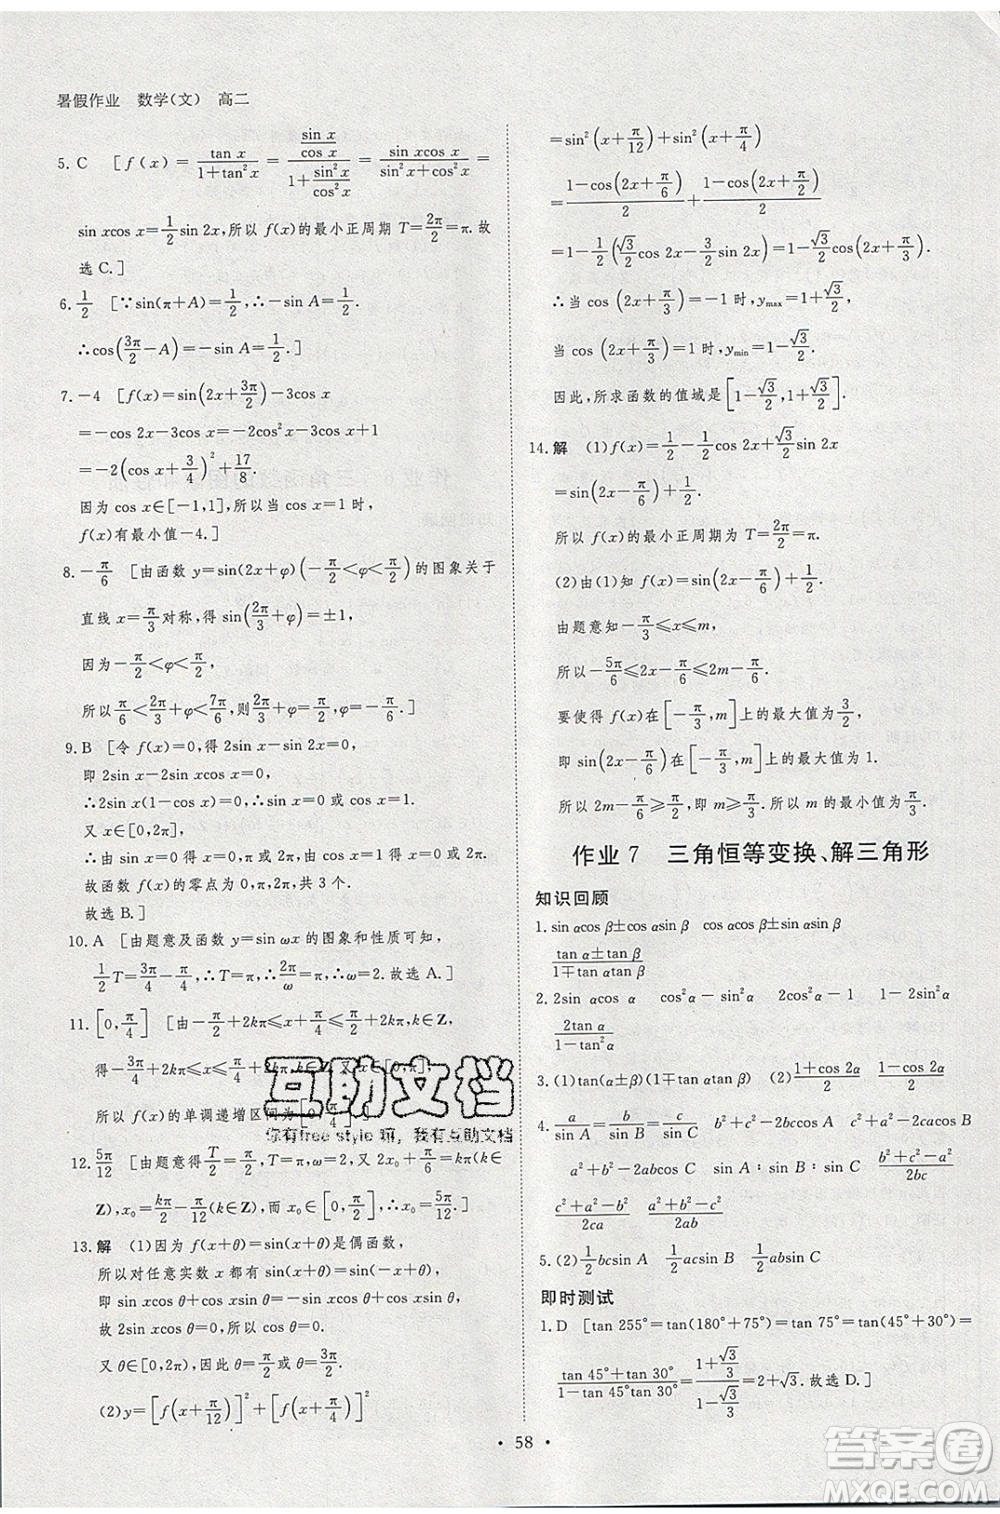 暑假作业 数学(文) 高二
5. C [f(x)=\frac{\tan x}{1+\tan^2 x}=\frac{\frac{\sin x}{\cos x}}{1+\frac{\sin^2 x}{\cos^2 x}}=\frac{\sin x\cos x}{\sin^2 x+\cos^2 x}=
sin xcos x=\frac{1}{2}sin 2x, 所以 f(x)的最小正周期 T=\frac{2π}{2}=π. 故
选 C.]
6. \frac{1}{2} [∵sin(π+A)=\frac{1}{2},∴-sin A=\frac{1}{2}.
∴cos(\frac{3π}{2}-A)=-sin A=\frac{1}{2}.]
7. -4 [f(x)=sin(2x+\frac{3π}{2})-3cos x
=-cos 2x-3cos x=-2cos²x-3cos x+1
=-2(cos x+\frac{3}{4})²+\frac{17}{8}.
因为 cos x∈[-1,1],所以当 cos x=1时,
f(x)有最小值-4.]
8. -\frac{π}{6} [由函数 y=sin(2x+φ)(-\frac{π}{2}<φ<\frac{π}{2})的图象关于
直线 x=\frac{π}{3}对称,得 sin(\frac{2π}{3}+φ)=±1.
因为-\frac{π}{2}<φ<\frac{π}{2},
所以\frac{π}{6}<\frac{2π}{3}+φ<\frac{7π}{6},则\frac{2π}{3}+φ=\frac{π}{2},φ=-\frac{π}{6}.]
9. B [令 f(x)=0,得 2sin x-sin 2x=0,
即 2sin x-2sin xcos x=0,
∴2sin x(1-cos x)=0,∴sin x=0或 cos x=1.
又 x∈[0,2π],
∴由 sin x=0,得 x=0,π或 2π,由 cos x=1,得 x=0或 2π.
故函数 f(x)的零点为 0,π,2π,共 3 个.
故选 B.]
10. A [由题意及函数 y=sin ωx 的图象和性质可知,
\frac{1}{2}T=\frac{3π}{4}-\frac{π}{4},∴T=π,∴\frac{2π}{ω}=π,∴ω=2.故选 A.]
11. [0,\frac{π}{4}] [由-\frac{π}{2}+2kπ≤2x≤\frac{π}{2}+2kπ,k∈Z,
得-\frac{π}{4}+kπ≤x≤\frac{π}{4}+kπ,k∈Z.
所以 f(x)的单调递增区间为[0,\frac{π}{4}].]
12. \frac{5π}{12} [由题意得\frac{T}{2}=\frac{π}{2},T=π,ω=2.又2x₀+\frac{π}{6}=kπ(k∈
Z),x₀=\frac{kπ}{2}-\frac{π}{12}(k∈Z),而 x₀∈[0,\frac{π}{2}],所以 x₀=\frac{5π}{12}.]
13. 解 (1)因为 f(x+θ)=sin(x+θ)是偶函数,
所以对任意实数 x 都有 sin(x+θ)=sin(-x+θ),
即 sin xcos θ+cos xsin θ=-sin xcos θ+cos xsin θ,
故 2sin xcos θ=0,所以 cos θ=0.
又 θ∈[0,2π),因此 θ=\frac{π}{2}或 θ=\frac{3π}{2}.
(2)y=[f(x+\frac{π}{12})]²+[f(x+\frac{π}{4})]²
=sin²(x+\frac{π}{12})+sin²(x+\frac{π}{4})
=\frac{1-cos(2x+\frac{π}{6})}{2}+\frac{1-cos(2x+\frac{π}{2})}{2}
=1-\frac{1}{2}(\frac{\sqrt{3}}{2}cos 2x-\frac{3}{2}sin 2x)=1-\frac{\sqrt{3}}{2}cos(2x+\frac{π}{3}).
∴当 cos(2x+\frac{π}{3})=-1时,y_{max}=1+\frac{\sqrt{3}}{2},
当 cos(2x+\frac{π}{3})=1时,y_{min}=1-\frac{\sqrt{3}}{2}.
因此,所求函数的值域是[1-\frac{\sqrt{3}}{2},1+\frac{\sqrt{3}}{2}].
14. 解 (1)f(x)=\frac{1}{2}-\frac{1}{2}cos 2x+\frac{\sqrt{3}}{2}sin 2x
=sin(2x-\frac{π}{6})+\frac{1}{2}.
所以 f(x)的最小正周期为 T=\frac{2π}{2}=π.
(2)由(1)知 f(x)=sin(2x-\frac{π}{6})+\frac{1}{2}.
由题意知-\frac{π}{3}≤x≤m,
所以-\frac{5π}{6}≤2x-\frac{π}{6}≤2m-\frac{π}{6}.
要使得 f(x)在[-\frac{π}{3},m]上的最大值为\frac{3}{2},
即 sin(2x-\frac{π}{6})在[-\frac{π}{3},m]上的最大值为1.
所以 2m-\frac{π}{6}≥\frac{π}{2},即 m≥\frac{π}{3}.所以 m 的最小值为\frac{π}{3}.
作业 7 三角恒等变换、解三角形
知识回顾
1. sin αcos β±cos αsin β cos αcos β∓sin αsin β
\frac{tan α±tan β}{1∓tan αtan β}
2. 2sin αcos α cos²α-sin²α 2cos²α-1 1-2sin²α
\frac{2tan α}{1-tan²α}
3. (1)tan(α±β)(1∓tan αtan β) (2)\frac{1+cos 2α}{2} \frac{1-cos 2α}{2}
4. \frac{a}{sin A}=\frac{b}{sin B}=\frac{c}{sin C} b²+c²-2bccos A c²+a²-2cacos B
a²+b²-2abcos C sin A:sin B:sin C \frac{b²+c²-a²}{2bc}
\frac{c²+a²-b²}{2ca} \frac{a²+b²-c²}{2ab}
5. (2)\frac{1}{2}bcsin A \frac{1}{2}acsin B \frac{1}{2}absin C
即时测试
1. D [tan 255°=tan(180°+75°)=tan 75°=tan(45°+30°)=
\frac{tan 45°+tan 30°}{1-tan 45°tan 30°}=\frac{1+\frac{\sqrt{3}}{3}}{1-\frac{\sqrt{3}}{3}}=2+\sqrt{3}.故选 D.]
• 58 •
互助文档
你有free style 嘛,我有互助文档
答案卷
MXQE.COM